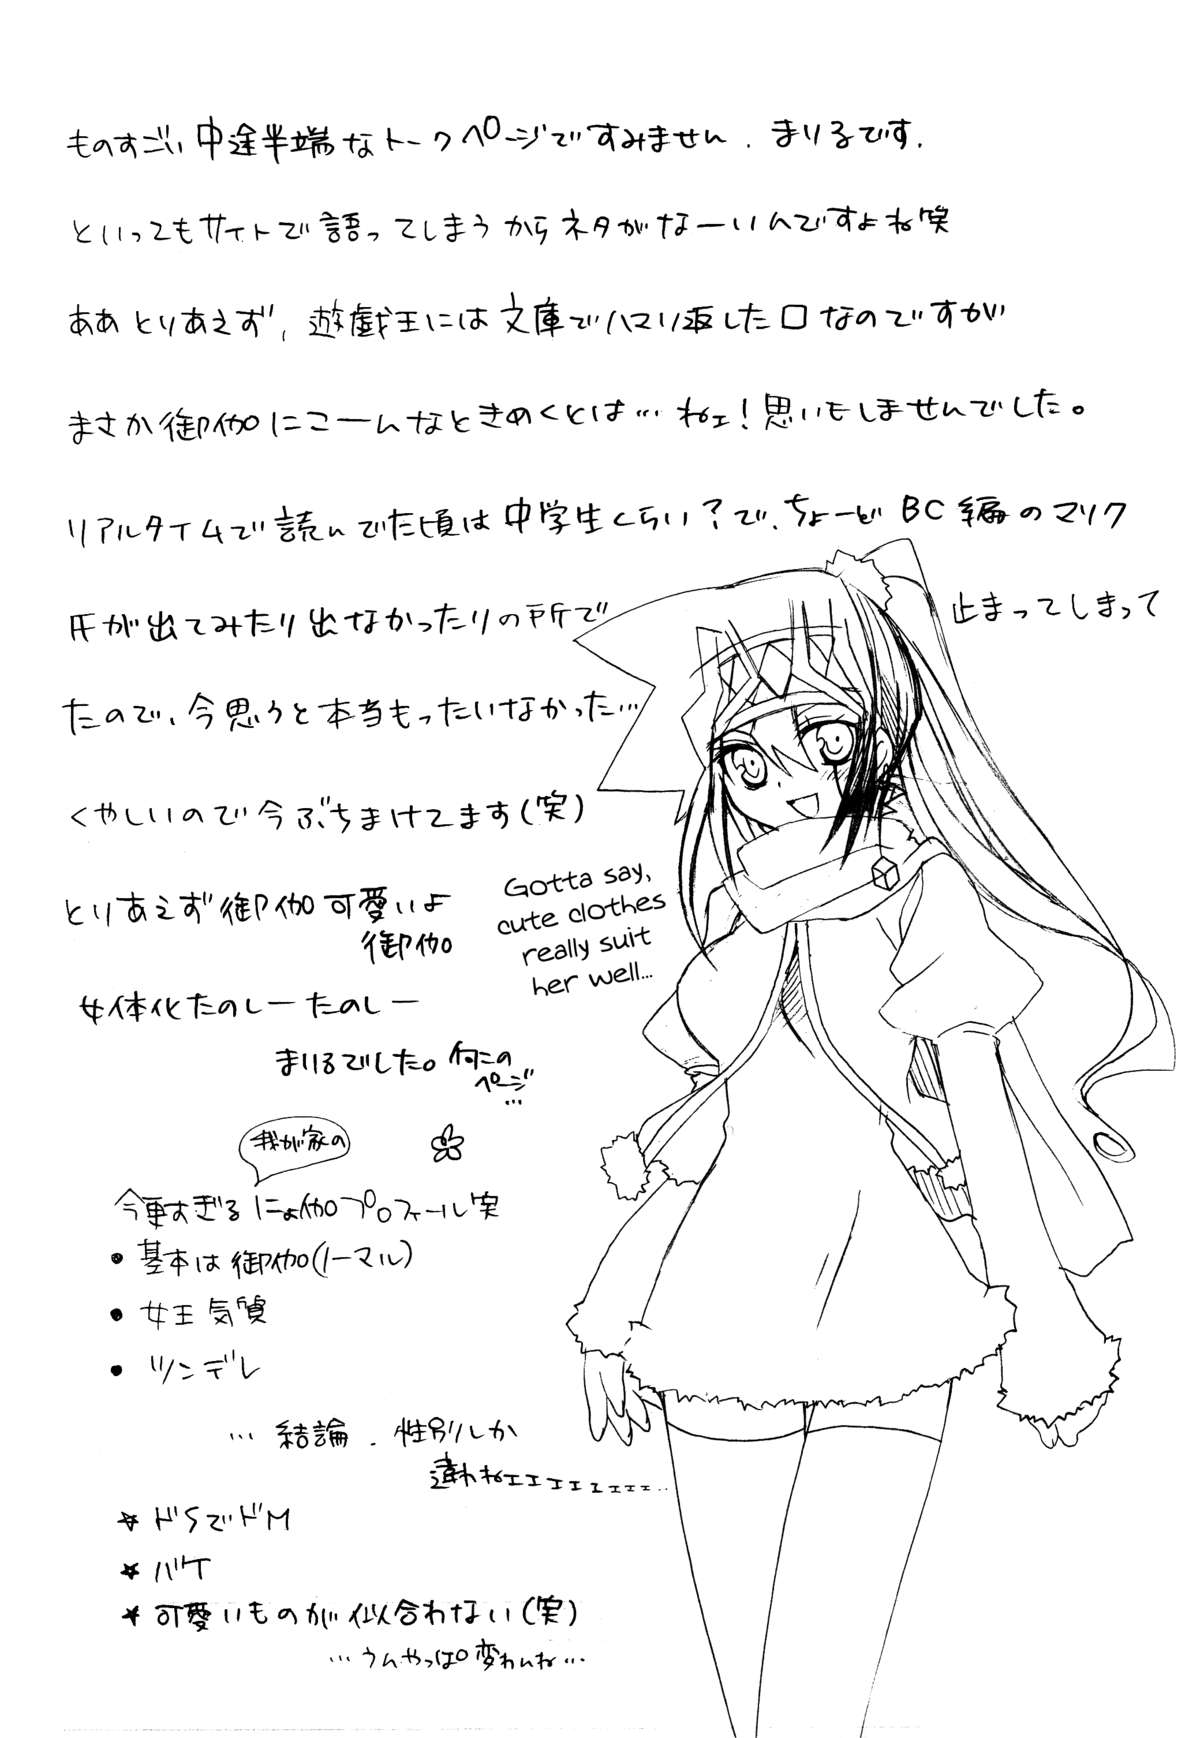 ものすごい中途半端なトークページですみません. まりるです.
といってもサイトで語ってしまうからネタがなーいんですよね笑
ああとりあえず, 遊戯王には文庫でハマり返した口なのですが
まさか御伽にこーんなときめくとは…ねェ!思いもしませんでした。
リアルタイムで読んでた頃は中学生くらい?で、ちょーどBC編のマリク
氏が出てみたり出なかったりの所で 止まってしまって
たので、今思うと本当もったいなかった…
くやしいので今ぶちまけてます(笑)
とりあえず御伽可愛いよ
御伽
女体化たのしーたのしー
まりるでした。何この
ページ
…
Gotta say,
cute clothes
really suit
her well...
我が家の
今更すぎるにょ伽プロフィール笑
• 基本は御伽(ノーマル)
• 女王気質
• ツンデレ
… 結論. 性別しか
違わねェェェェェェェェ…
☆ ドSでドM
☆ バケ
☆ 可愛いものが似合わない(笑)
…うんやっぱ変わんね…